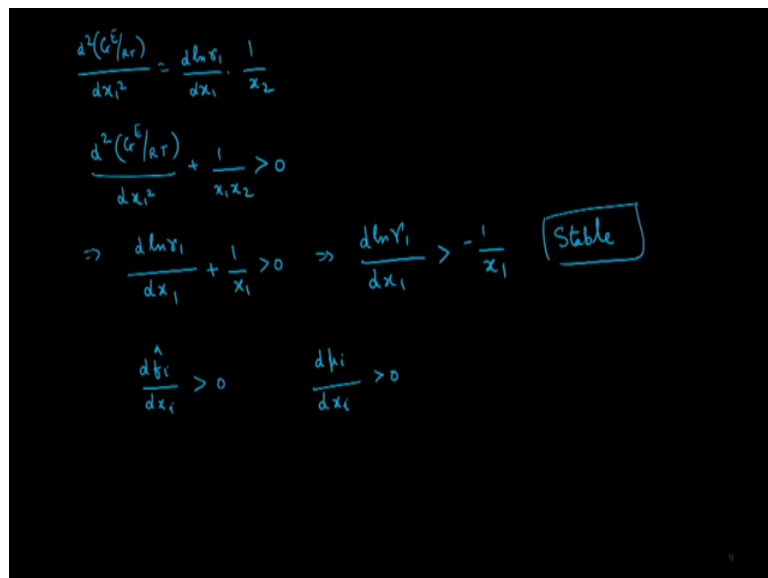 d²(Gᴱ/RT)/dx₁² = dlnγ₁/dx₁ · 1/x₂
d²(Gᴱ/RT)/dx₁² + 1/x₁x₂ > 0
⇒ dlnγ₁/dx₁ + 1/x₁ > 0 ⇒ dlnγ₁/dx₁ > -1/x₁ Stable
df̂ᵢ/dxᵢ > 0 dμᵢ/dxᵢ > 0